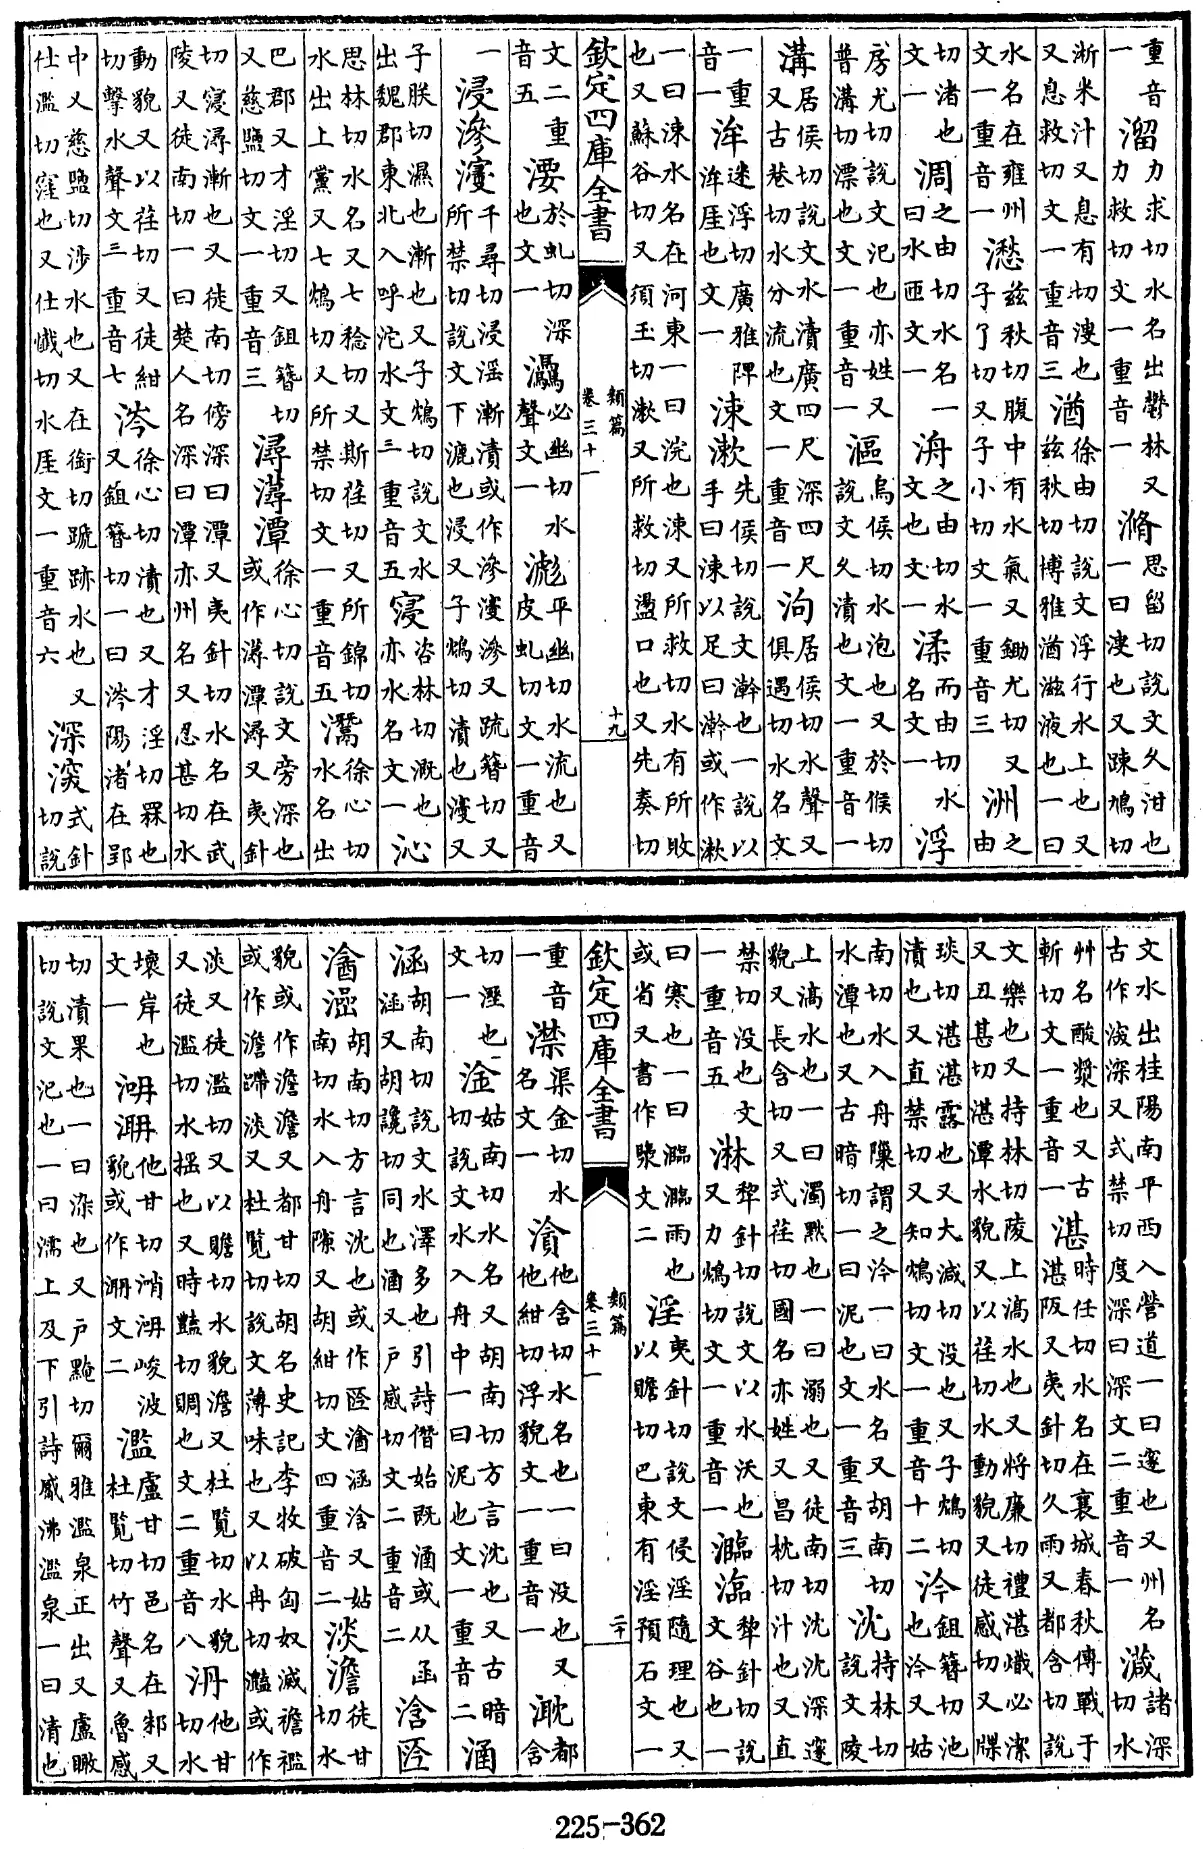 重音一溜力求切水名出鬱林又力救切文一重音一滫思留切說文久泔也一曰溲也又踈鳩切
淅米汁又息有切溲也又息救切文一重音三湭徐由切說文浮行水上也又玆秋切博雅湭滋液也一曰
水名在雍州文一重音一玆秋切腹中有水氣又鋤尤切又子了切又子小切文一重音三洲之由
切渚也文一淍之由切水名一曰水匝文一洀之由切水文也文一渘而由切水名文一浮
房尤切說文汜也亦姓又普溝切漂也文一重音一漚烏侯切水泡也又於候切說文久漬也文一重音一
溝居侯切說文水瀆廣四尺深四尺又古巷切水分流也文一重音一泃居侯切水聲又俱遇切水名文
一重音一洠迷浮切廣雅洠厓也文一涑漱先侯切說文澣也一說以手曰涑以足曰澣或作漱
一曰涑水名在河東一曰浣也涑又所救切水有所敗也又蘇谷切又須玉切漱又所救切盪口也又先奏切
欽定四庫全書 類篇 卷三十一 十九
文二重音五於虬切深也文一必幽切水聲文一滮平幽切水流也又皮虬切文一重音
一浸滲㴆千尋切浸滛漸漬或作滲㴆滲又疏簪切又所禁切說文下漉也浸又子鴆切漬也㴆又
子朕切濕也漸也又子鴆切說文水出魏郡東北入呼沱水文三重音五寖咨林切溉也亦水名文一沁
思林切水名又七稔切又斯荏切又所錦切水出上黨又七鴆切又所禁切文一重音五灊徐心切水名出
巴郡又才淫切又鉏簪切又慈鹽切文一重音三潯潭徐心切說文旁深也或作潭潯又夷針
切㴆潯漸也又徒南切傍深曰潭又夷針切水名在武陵又徒南切一曰楚人名深曰潭亦州名又忍甚切水
動貌又以荏切又徒紺切切擊水聲文三重音七涔徐心切漬也又才淫切罧也又鉏簪切一曰涔陽渚在郢
中又慈鹽切涉水也又在銜切蹏跡水也又仕濫切窪也又仕懺切水厓文一重音六深㴱式針切說
文水出桂陽南平西入營道一曰邃也又州名古作㴱深又式禁切度深曰深文二重音一諸深切水
艸名酸漿也又古斬切文一重音一湛時任切水名在襄城春秋傳戰于湛阪又夷針切久雨又都含切說
文樂也又持林切陵上滈水也又將廉切禮湛熾必潔又丑甚切湛潭水貌又以荏切水動貌又徒感切又牒
琰切湛湛露也又大減切没也又子鴆切漬也又直禁切又知鴆切文一重音十二汵鉏簪切池也汵又姑
南切水入舟隟謂之汵一曰水名又胡南切水潭也又古暗切一曰泥也文一重音三沈持林切說文陵
上滈水也一曰濁黕也一曰溺也又徒南切沈沈深邃貌又長含切又式荏切國名亦姓又昌枕切汁也又直
禁切没也文一重音五淋犂針切說文以水沃也又力鴆切文一重音一瀶犂針切說文谷也一
曰寒也一曰瀶瀶雨也或省又書作文二淫夷針切說文侵淫隨理也又以贍切巴東有淫預石文一
欽定四庫全書 類篇 卷三十一 二十
重音一澿渠金切水名文一他含切水名也一曰没也又他紺切浮貌文一重音一都含
切溼也文一淦姑南切水名又胡南切方言沈也又古暗切說文水入舟中一曰泥也文一重音二涵
涵胡南切說文水澤多也引詩僭始既涵或从函涵又胡讒切同也涵又戶感切文二重音二浛
胡南切方言沈也或作涵浛又姑南切水入舟隙又胡紺切文四重音二淡澹徒甘切水
貌或作澹澹又都甘切胡名史記李牧破匈奴滅襜襤或作澹蹛淡又杜覽切說文薄味也又以冉切灩或作
淡又徒濫切又以贍切水貌澹又杜覽切水貌又徒濫切水摇也又時豔切賙也文二重音八他甘切水
壞岸也文一他甘切峻波貌或作文二濫盧甘切邑名在邾又杜覽切竹聲又魯感
切漬果也一曰染也又戶黤切爾雅濫泉正出又盧瞰切說文汜也一曰濡上及下引詩觱沸濫泉一曰清也
225-362